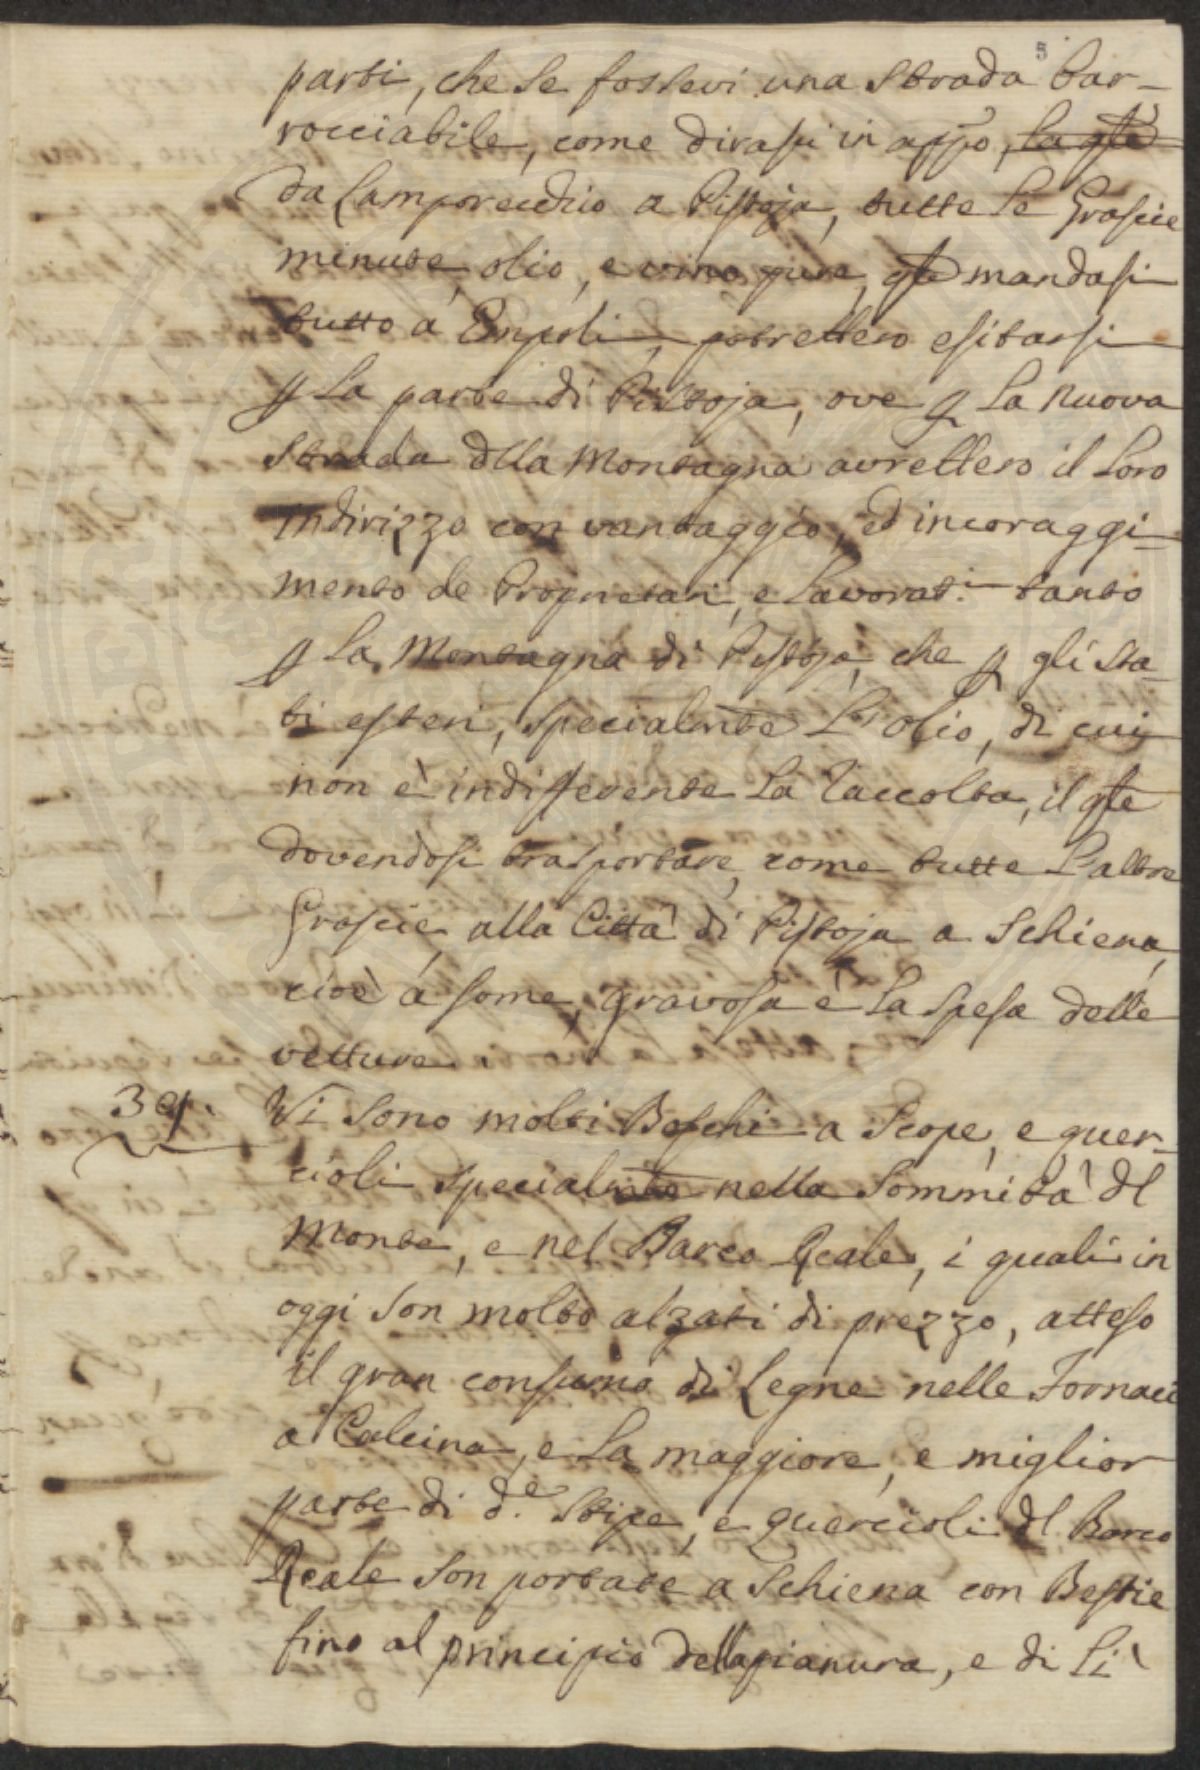 5
parti, che se fossevi una strada bar-
rocciabile, come dirassi in appo, la qle
da Lamporecchio a Pistoja, tutte le Grascie
minute, olio, e vino pure, qle mandasi
tutto a Empoli, potrebbero esitarsi
p la parte di Pistoja, ove p la nuova
strada dlla Montagna avrebbero il loro
indirizzo con vantaggio, ed incoraggi-
mento de Proprietari, e Lavorat.i tanto
p la Montagna di Pistoja, che p gli sta-
ti esteri, specialmte l'olio, di cui
non è indifferente la raccolta, il qle
dovendosi trasportare, come tutte l'altre
Grascie, alla Città di Pistoja a schiena,
cioè a some, gravosa è la spesa delle
vetture.
39. Vi sono molti Boschi a Scope, e quer-
cioli specialmte nella sommità dl
Monte, e nel Barco Reale, i quali in
oggi son molto alzati di prezzo, atteso
il gran consumo di Legne nelle Fornaci
a Calcina, e la maggiore, e miglior
parte di d.e Stipe, e quercioli dl Barco
Reale son portate a schiena con Bestie
fino al principio della pianura, e di lì